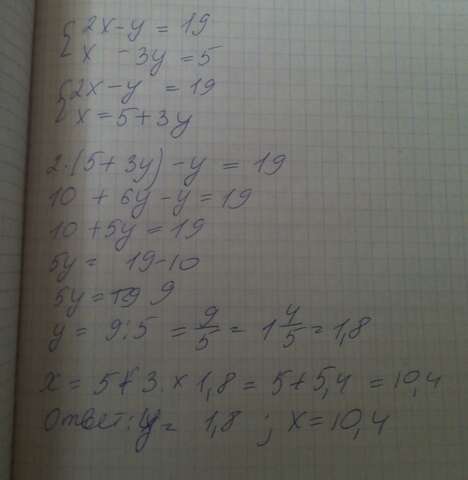 {2x-y = 19
{x - 3y = 5
{2x-y = 19
{x = 5+3y
2·(5+3y)-y = 19
10 + 6y-y = 19
10+5y = 19
5y = 19-10
5y = 9
y = 9:5 = 9/5 = 1 4/5 = 1,8
x = 5+3·×1,8 = 5+5,4 = 10,4
Ответ: y = 1,8 ; x = 10,4